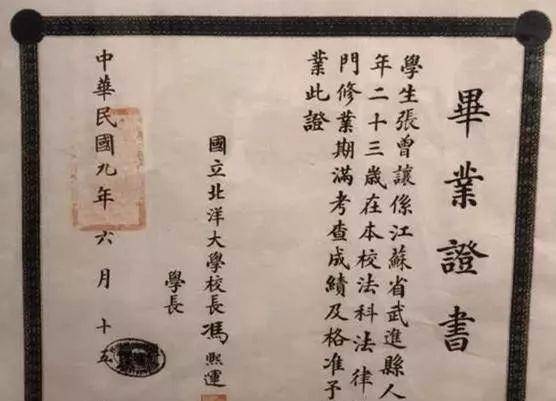 畢業證書
學生張曾讓係江蘇省武進縣人
年二十三歲在本校法科法律
門修業期滿考查成績及格准予
業此證
國立北洋大學校長馮熙運
學長
中華民國九年六月十五